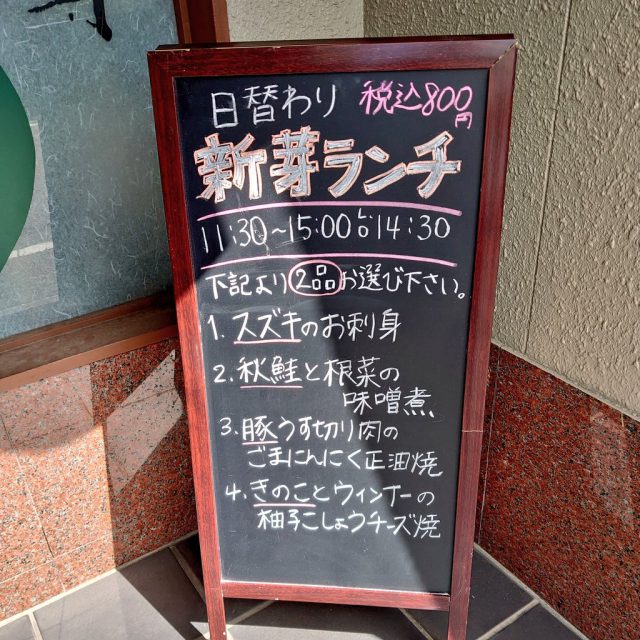 日替わり 税込800円
新芽ランチ
11:30~15:00 L.O 14:30
下記より2品お選び下さい。
1. スズキのお刺身
2. 秋鮭と根菜の
味噌煮
3. 豚うす切り肉の
ごまにんにく正油焼
4. きのことウィンナーの
柚子こしょうチーズ焼